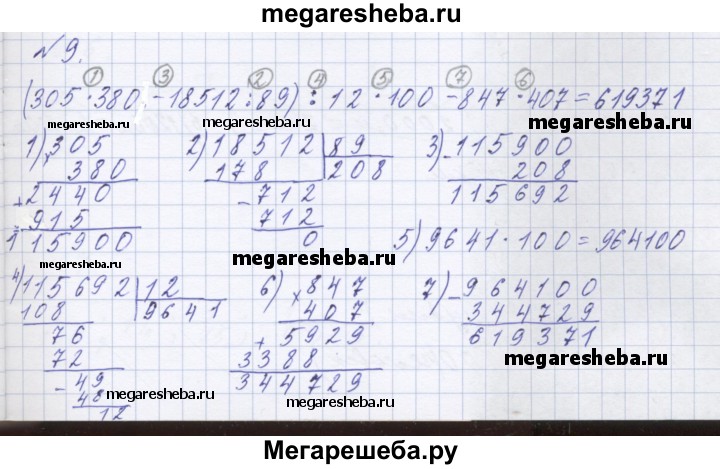 megaresheba.ru
№9.
1 3 2 4 5 7 6
(305·380-18512:89):12·100-847·407=619371
megaresheba.ru megaresheba.ru megaresheba.ru
1) × 305
380
+ 2440
915
115900
2) 18512 | 89
178 | 208
- 712
712
0
3) - 115900
208
115692
megaresheba.ru
5) 9641·100=964100
4) 115692 | 12
108 | 9641
76
72
- 49
48
12
megaresheba.ru
6) × 847
407
+ 5929
3388
344729
megaresheba.ru
7) - 964100
344729
619371
megaresheba.ru
Мегарешеба.ру